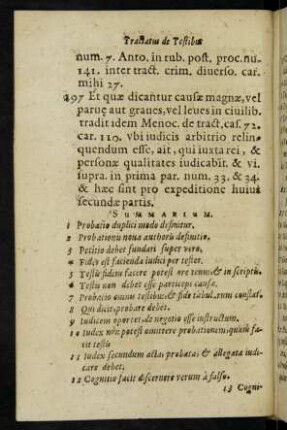 Tractatus de Testibus
num. 7. Anto. in rub. post. proc. nu.
141. inter tract. crim. diuerso. car.
mihi 27.
297 Et quæ dicantur causæ magnæ, vel
paruę aut graues, vel leues in ciuilib.
tradit idem Menoc. de tract. caf. 72.
car. 110. vbi iudicis arbitrio relin-
quendum esse, ait, qui iuxta rei, &
personæ qualitates iudicabit. & vi.
supra. in prima par. num. 33. & 34.
& hæc sint pro expeditione huius
secundæ partis.
SUMMARIUM.
1 Probatio duplici modo definitur.
2 Probationis noua authoris definitio.
3 Petitio debet fundari super vero.
4 Fides est facienda iudici per testes.
5 Testis fidem facere potest ore tenus, & in scriptis
6 Testis non debet esse particeps causæ.
7 Probatio omnis testibus, & fide tabul. rum constat.
8 Qui dicit, probare debet.
9 Iudicem oportet de negotio esse instructum.
10 Iudex non potest omittere probationem, quæ fa-
cit testis
11 Iudex secundum acta, probata, & allegata iudi-
care debet.
12 Cognitio facit discernere verum à falso.
13 Cogni-